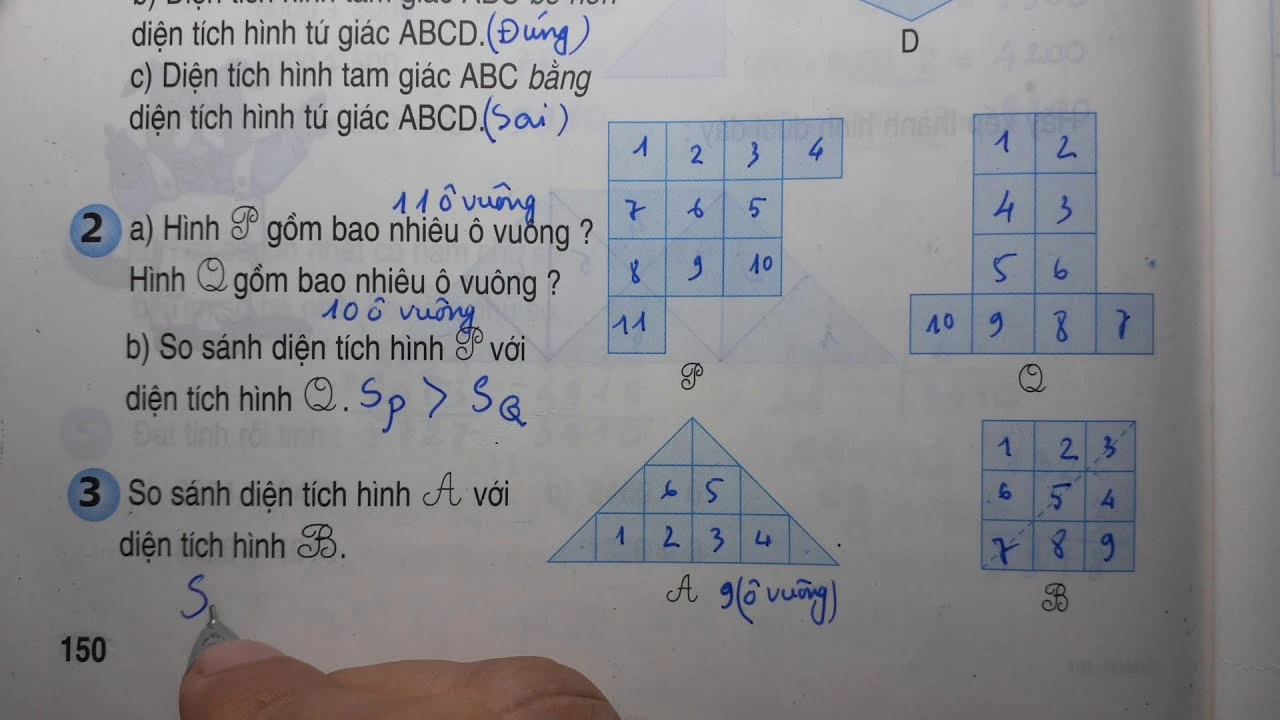 diện tích hình tứ giác ABCD.(Đúng)
D
c) Diện tích hình tam giác ABC bằng
diện tích hình tứ giác ABCD.(Sai)
11 ô vuông
2 a) Hình P gồm bao nhiêu ô vuông ?
Hình Q gồm bao nhiêu ô vuông ?
10 ô vuông
b) So sánh diện tích hình P với
diện tích hình Q. Sp > SQ
1 2 3 4
7 6 5
8 9 10
11
P
1 2
4 3
5 6
10 9 8 7
Q
3 So sánh diện tích hình A với
diện tích hình B.
S
6 5
1 2 3 4
A 9(ô vuông)
1 2 3
6 5 4
7 8 9
B
150